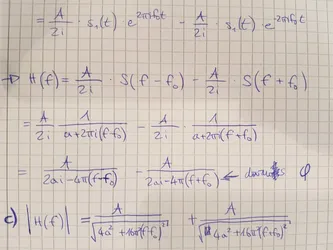 = A/2i · s₁(t) e^{2πif₀t} - A/2i · s₁(t) · e^{-2πif₀t}
→ H(f) = A/2i · S(f-f₀) - A/2i · S(f+f₀)
= A/2i · 1/(a+2πi(f-f₀)) - A/2i · 1/(a+2πi(f+f₀))
= A/(2ai-4π(f-f₀)) - A/(2ai-4π(f+f₀)) ← φ
c) |H(f)| = A/√(4a²+16π²(f-f₀)²) + A/√(4a²+16π²(f+f₀)²)